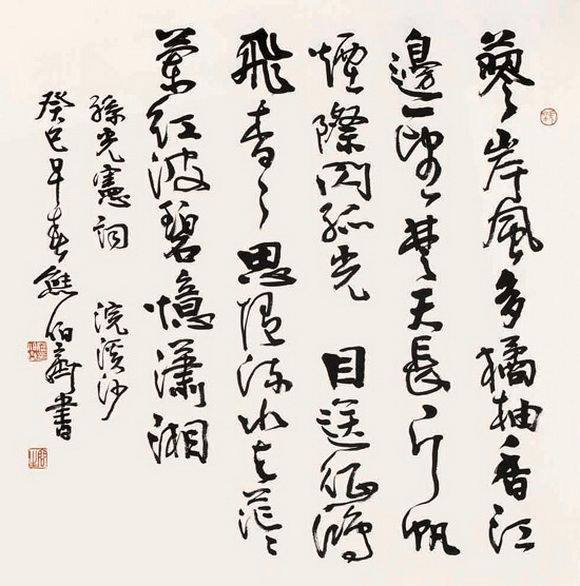 蓼岸風多橘柚香江
邊一望楚天長片帆
煙際閃孤光 目送征鴻
飛杳々思隨流水去茫々
蘭紅波碧憶瀟湘
孫光憲詞 浣溪沙
癸巳早春熊伯齊書